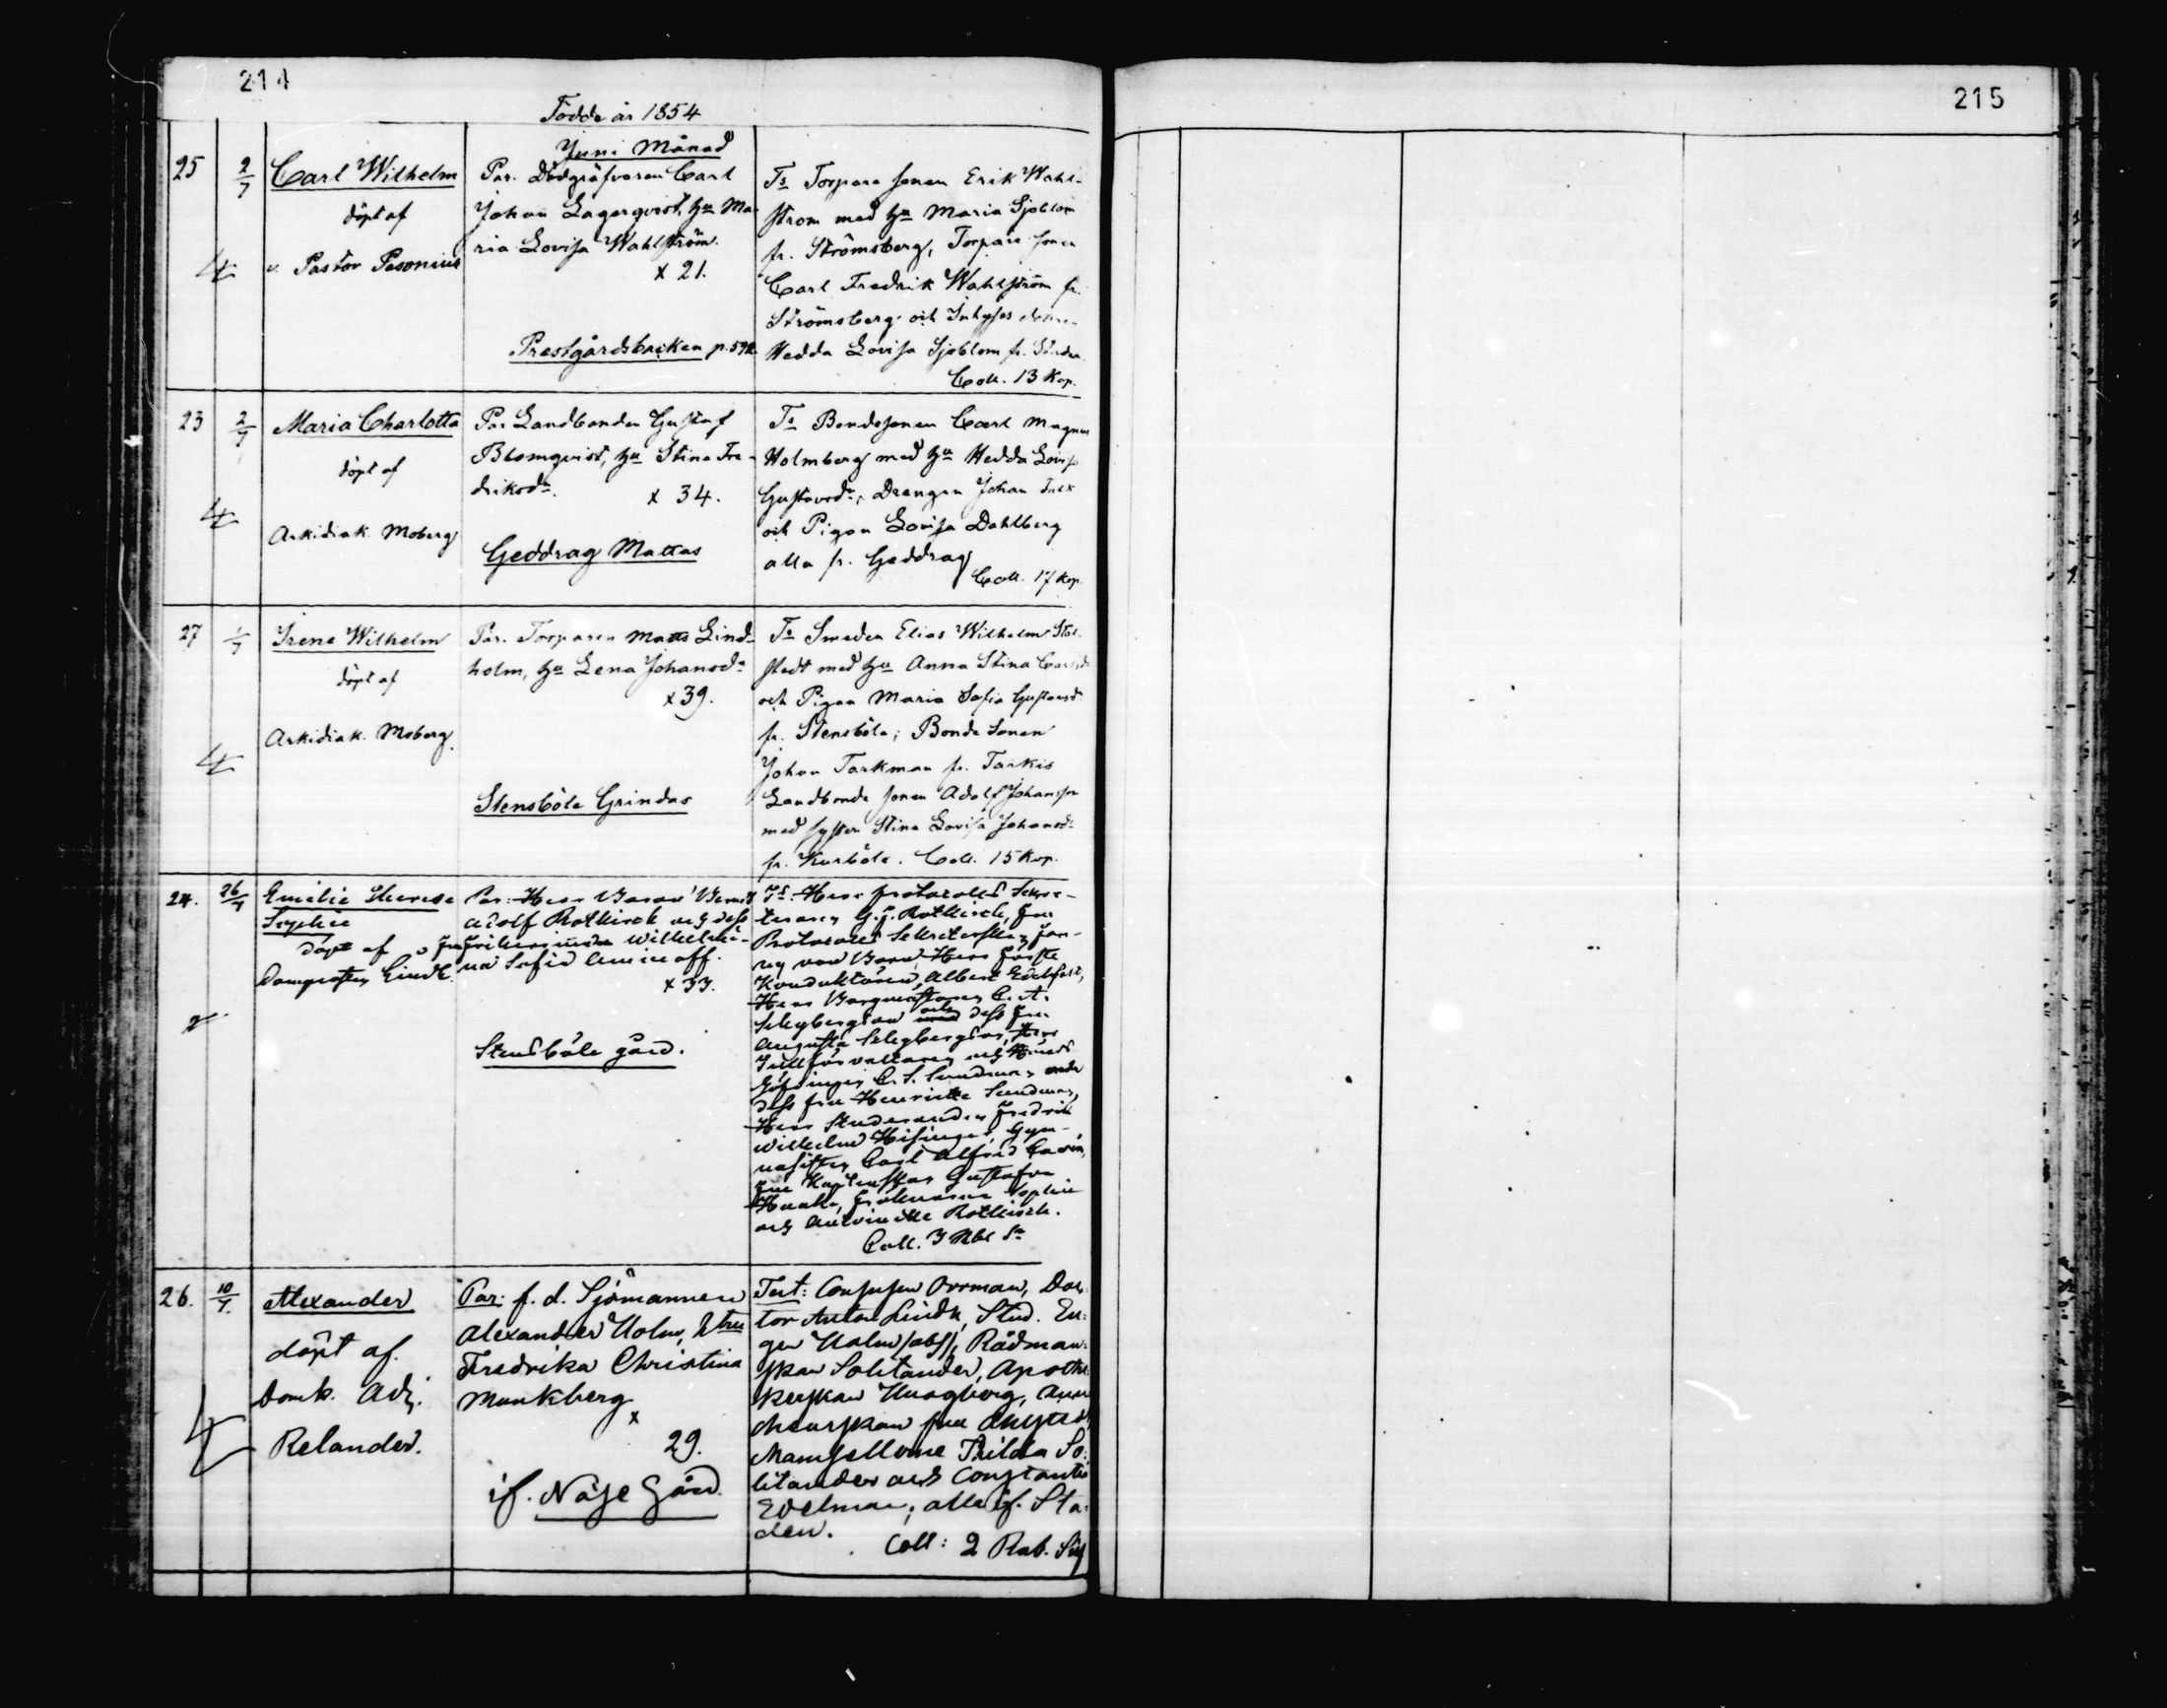 214
215
Födde år 1854
Juni Månad
25 2/7 Carl Wilhelm
döpt af
v. Pastor Pesonius
Par. Dödgräfvaren Carl
Johan Lagerqvist, hu Ma-
ria Lovisa Wahlström.
x 21.
Prestgårdsbacken p. 592
Ts Torpare sonen Erik Wahl-
ström med hu Maria Sjöblom
fr. Strömsberg, Torpare sonen
Carl Fredrik Wahlström fr.
Strömsberg och Inhyses
Hedda Lovisa Sjöblom fr.
Coll. 13 Kop.
23 2/7 Maria Charlotta
döpt af
Arkidiak. Moberg
Par Landbonden Gustaf
Blomqvist, hu Stina Fre-
driksdr.
x 34.
Geddrag Mattas
Ts Bondesonen Carl Magnus
Holmberg med hu Hedda Lovisa
Gustavsdr, Drengen Johan
och Pigan Lovisa Dahlberg
alla fr. Geddrag
Coll. 17 Kop.
27 1/7 Irene Wilhelm
döpt af
Arkidiak. Moberg.
Par. Torparen Matts Lind-
holm, hu Lena Johansdr
x 39.
Stensböle Grindas
Ts Smeden Elias Wilhelm Stål-
stedt med hu Anna Stina Carlsdr
och Pigan Maria Sofia Gustavsdr
fr. Stensböle; Bonde Sonen
Johan Tarkman fr. Tarkis
Landbonde sonen Adolf Johansson
med syster Stina Lovisa Johansdr
fr. Kurböle. Coll. 15 Kop.
24. 26/7 Emilie Therese
Sophie
döpt af
Domprosten Lindh.
Par: Herr Baron Berndt
Adolf Rotkirch och dess
fru Friherrinnan Wilhelmi-
na Sofia Aminoff.
x 33.
Stensböle gård.
Ts: Herr Protocolls Sekre-
teraren G. F. Rotkirch, fru
Protocolls Sekreterskan Fan-
ny von Born, Herr förste
Konduktören, Albert Edelfelt,
Herr Borgmästaren C. A.
Selegbergson och dess fru
Augusta Selegbergson, Herr
Tullförvaltaren och Härads
Höfdingen C. S. Sundman och
dess fru Henriette Sundman,
Herr Studeranden Fredrik
Wilhelm Hisinger, Gym-
nasisten Carl Alfred
fru Kaptenskan Gustafva
fröknarna Sophie
och Antoinette Rotkirch.
Coll. 3 Rbl Sr
26. 10/7. Alexander
döpt af
Domk. Adj.
Relander.
Par: f. d. Sjömannen
Alexander Holm, Hstru
Fredrika Christina
Munkberg
x
29.
if. Näse Gård
Test: Consuln Orrman, Doc-
tor Anton Lindh, Stud. Eu-
gen Holm, Rådman-
skan Solitander, Apothe-
kerskan
fru
Mamsellerne Thilda So-
litander och Constantia
Edelman; alla if. Sta-
den.
Coll: 2 Rub. Silf